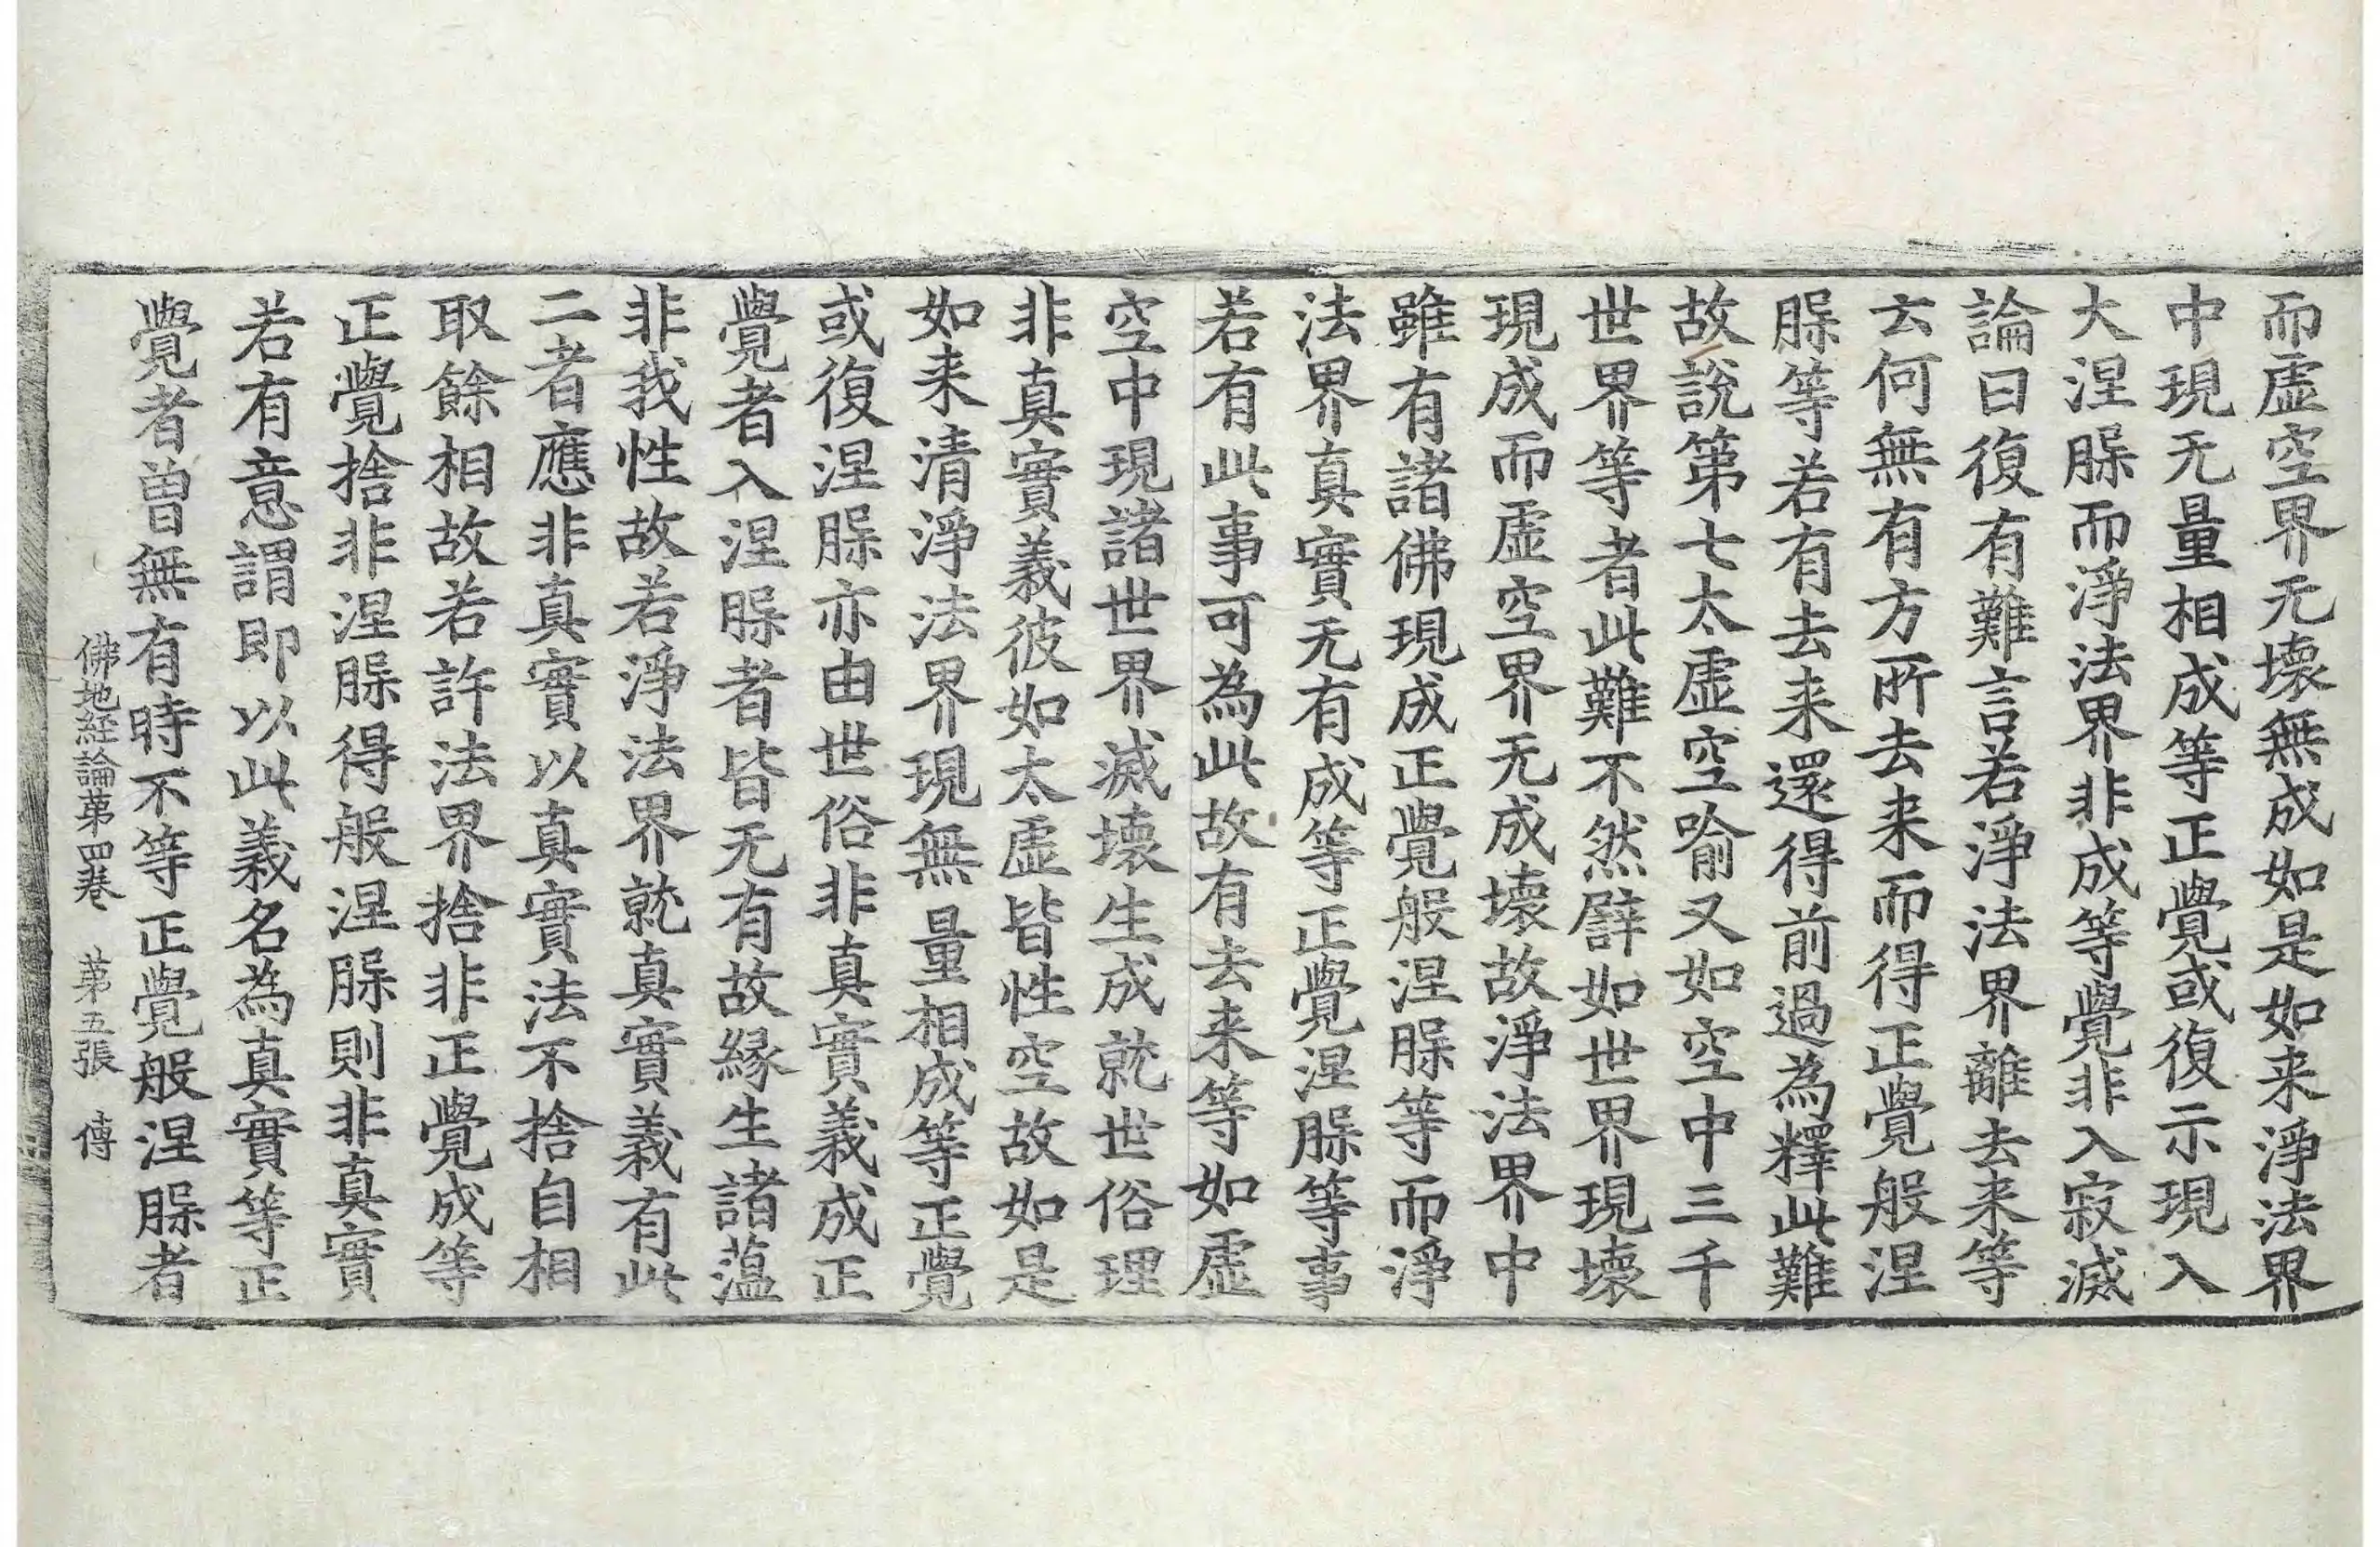 而虛空界无壞無成如是如来淨法界
中現无量相成等正覺或復示現入
大涅脲而淨法界非成等覺非入寂滅
論曰復有難言若淨法界離去来等
云何無有方所去来而得正覺般涅
脲等若有去来還得前過為釋此難
故說第七太虛空喻又如空中三千
世界等者此難不然辟如世界現壞
現成而虛空界无成壞故淨法界中
雖有諸佛現成正覺般涅脲等而淨
法界真實无有成等正覺涅脲等事
若有此事可為此故有去来等如虛
空中現諸世界滅壞生成就世俗理
非真實義彼如太虛皆性空故如是
如来清淨法界現無量相成等正覺
或復涅脲亦由世俗非真實義成正
覺者入涅脲者皆无有故緣生諸薀
非我性故若淨法界就真實義有此
二者應非真實以真實法不捨自相
取餘相故若許法界捨非正覺成等
正覺捨非涅脲得般涅脲則非真實
若有意謂即以此義名為真實等正
覺者曾無有時不等正覺般涅脲者
佛地経論第四卷 第五張 傳